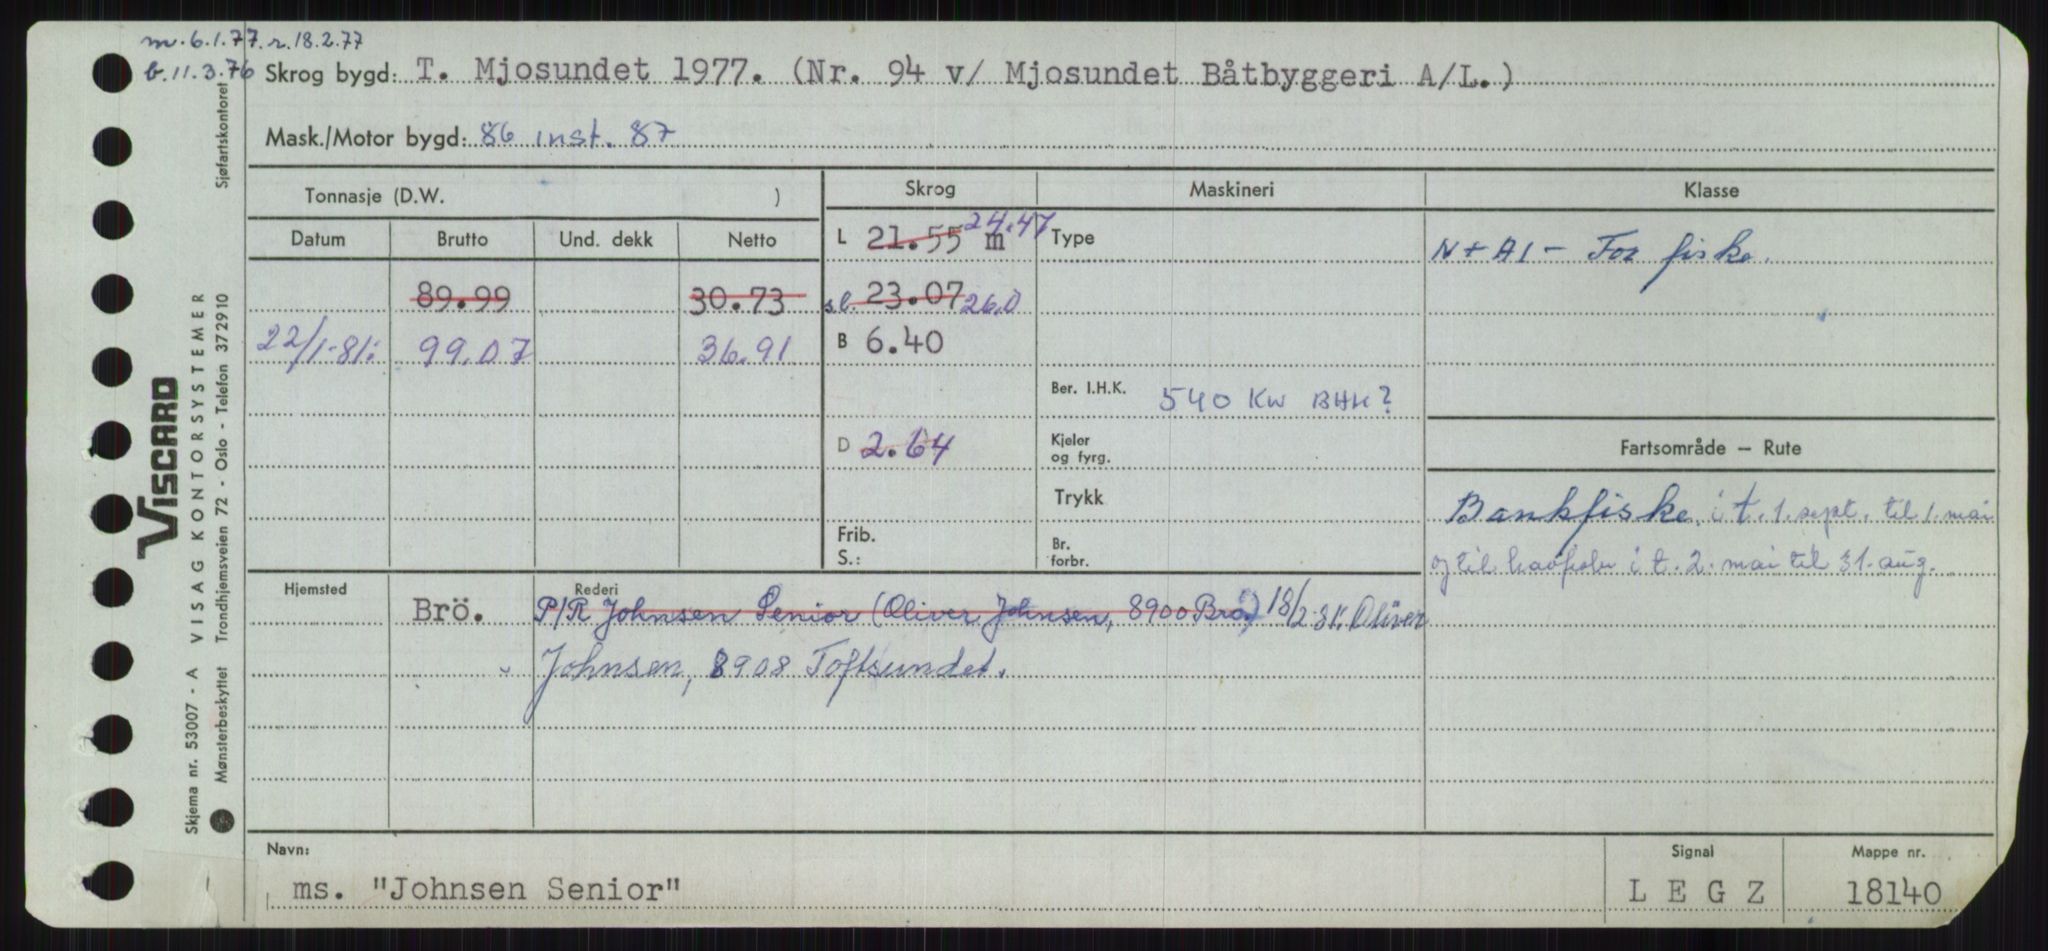 m. 6.1.77. r. 18.2.77
b. 11.3.76 Skrog bygd: T. Mjosundet 1977. (Nr. 94 v/ Mjosundet Båtbyggeri A/L.)
Mask./Motor bygd: 86 inst. 87
Tonnasje (D.W. ) Skrog Maskineri Klasse
Datum Brutto Und. dekk Netto L 21.55 m 24.47 Type N + A1 - For fiske.
89.99 30.73 s.l. 23.07 26.0
22/1-81: 99.07 36.91 B 6.40
Ber. I.H.K. 540 KW BHK?
D 2.64 Kjeler og fyrg. Fartsområde – Rute
Trykk Bankfiske i t. 1. sept. til 1. mai
Frib. S.: Br. forbr. og til havfiske i t. 2. mai til 31. aug.
Hjemsted Rederi
Brö. P/R Johnsen Senior (Oliver Johnsen, 8900 Brö.) 18/2-81: Oliver
" Johnsen, 8908 Toftsundet.
Navn: Signal Mappe nr.
ms. "Johnsen Senior" L E G Z 18140
Sjøfartskontoret
VISCARD
VISAG KONTORSYSTEMER
Skjema nr. 53007 - A
Trondhjemsveien 72 - Oslo - Telefon 372910
Mønsterbeskyttet